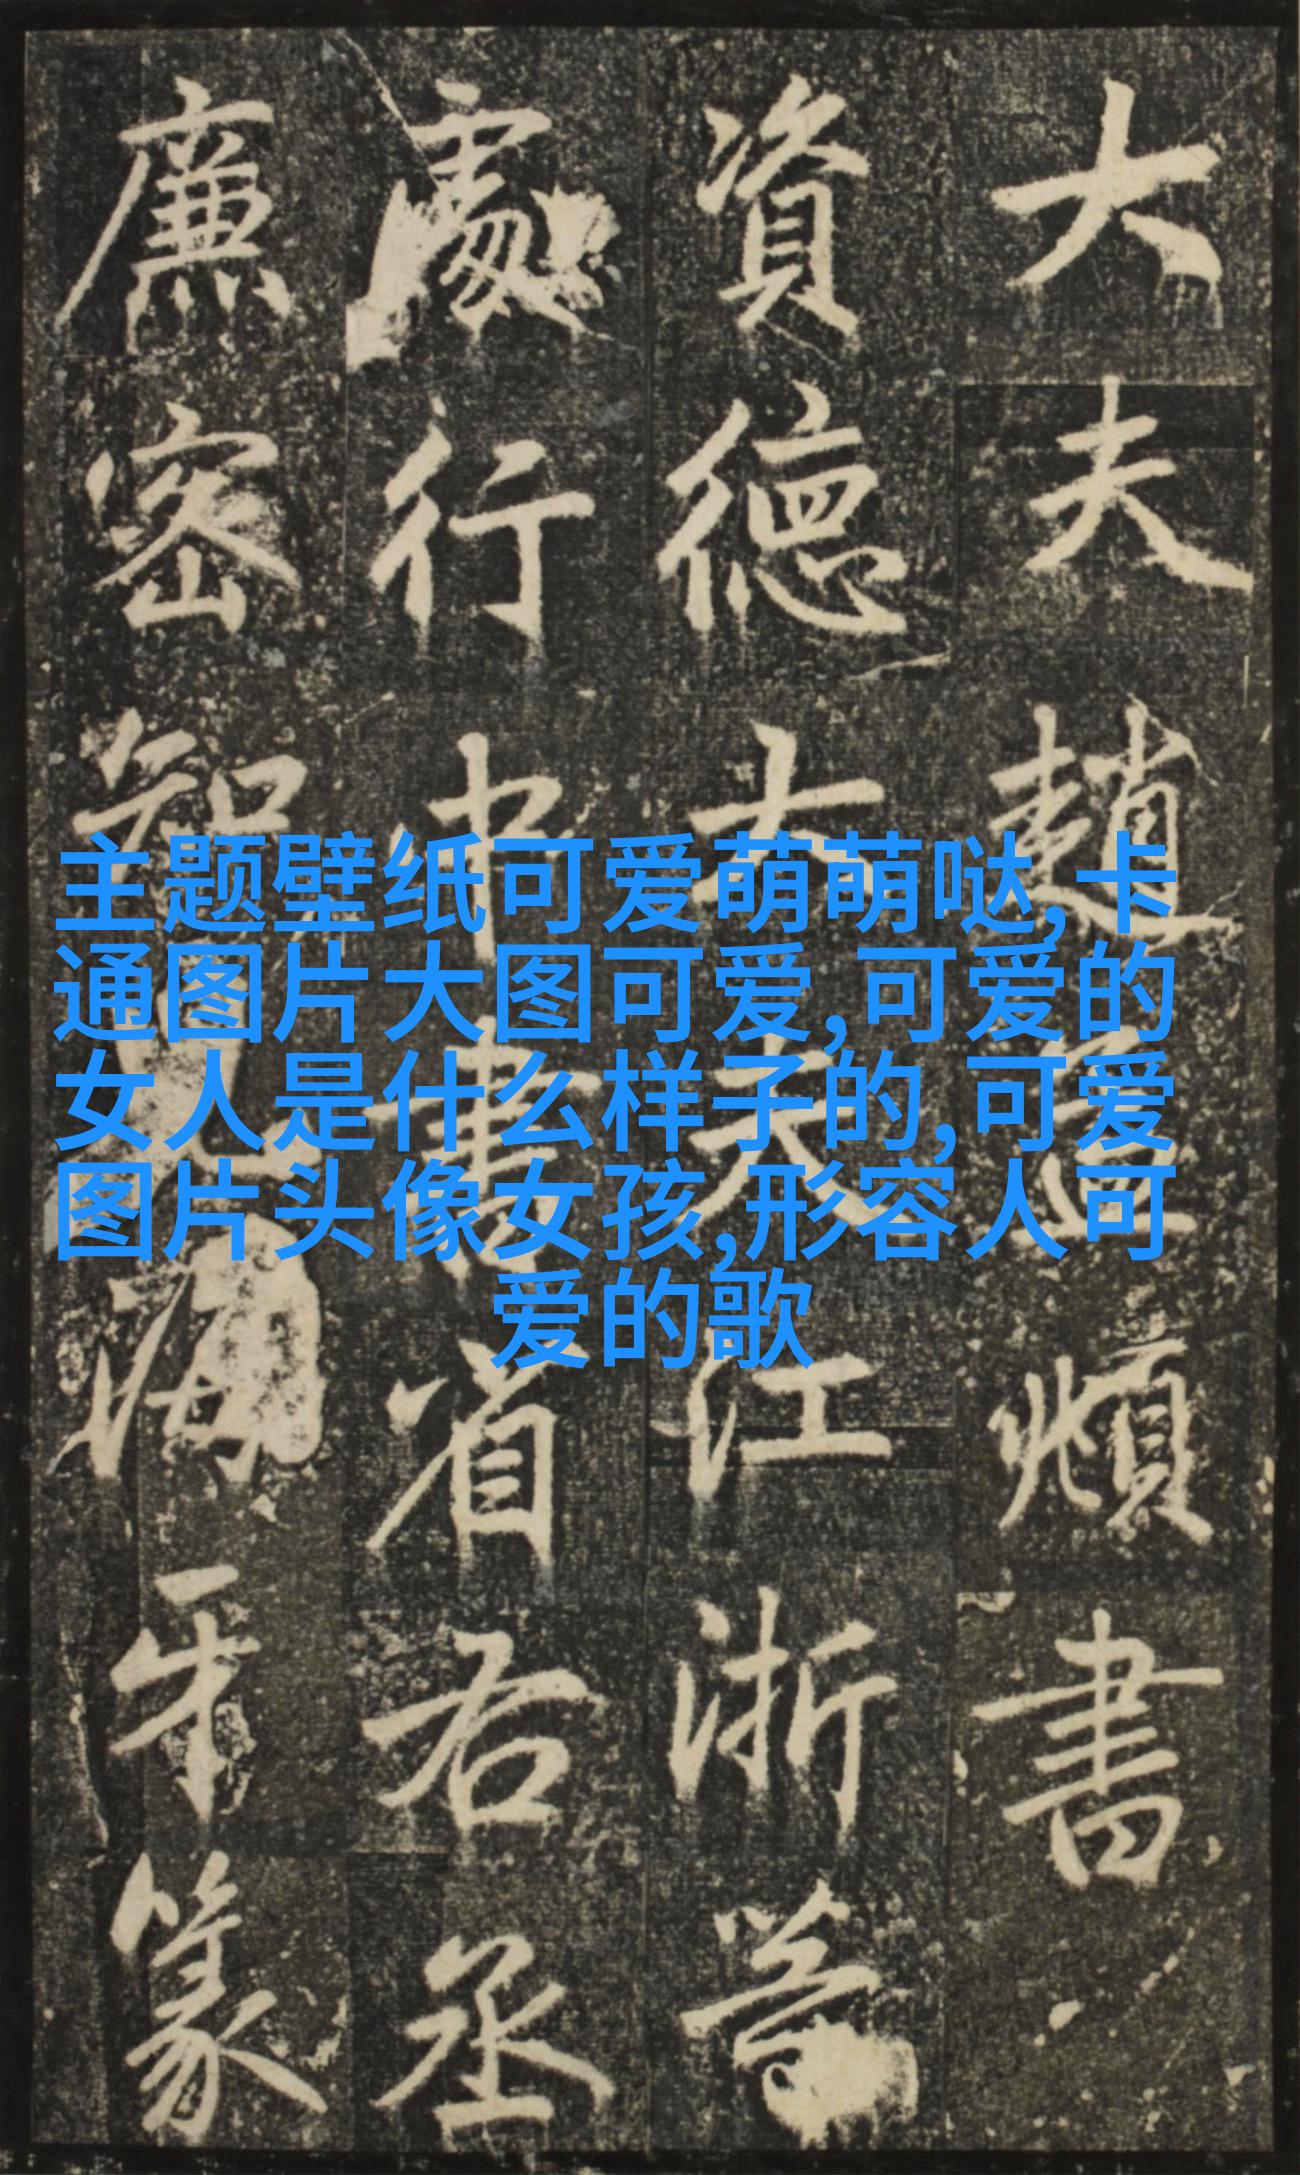 大夫趙孟頫書
資德大夫江浙等
處行中書省右丞
廉密知兒海牙篆
主题壁纸可爱萌萌哒,卡
通图片大图可爱,可爱的
女人是什么样子的,可爱
图片头像女孩,形容人可
爱的歌